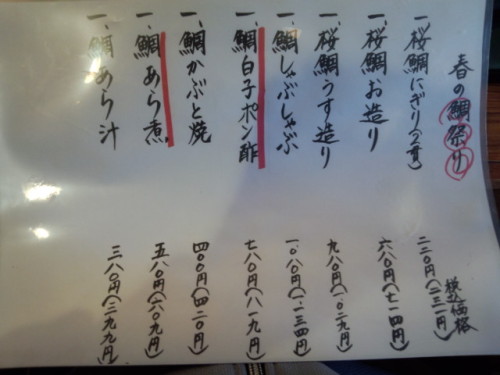 春の鯛祭り
税込価格
一、桜鯛にぎり(2貫) 二二〇円(二三一円)
一、桜鯛お造り 六八〇円(七一四円)
一、桜鯛うす造り 九八〇円(一〇二九円)
一、鯛しゃぶしゃぶ 一、〇八〇円(一、一三四円)
一、鯛白子ポン酢 七八〇円(八一九円)
一、鯛かぶと焼 四〇〇円(四二〇円)
一、鯛あら煮 五八〇円(六〇九円)
一、鯛あら汁 三八〇円(三九九円)